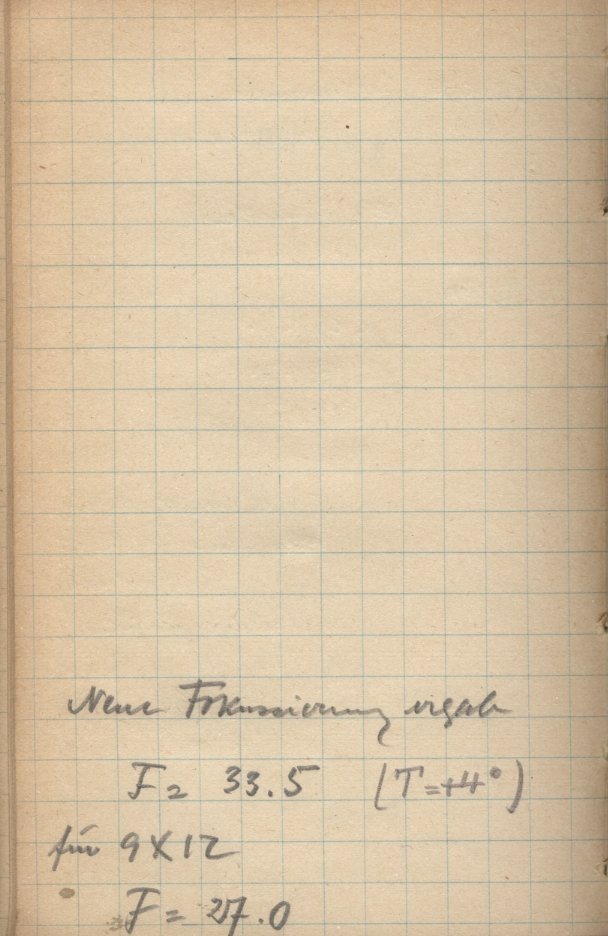 Neue Fokussierung ergab
F = 33.5 (T=+4°)
für 9X12
F = 27.0